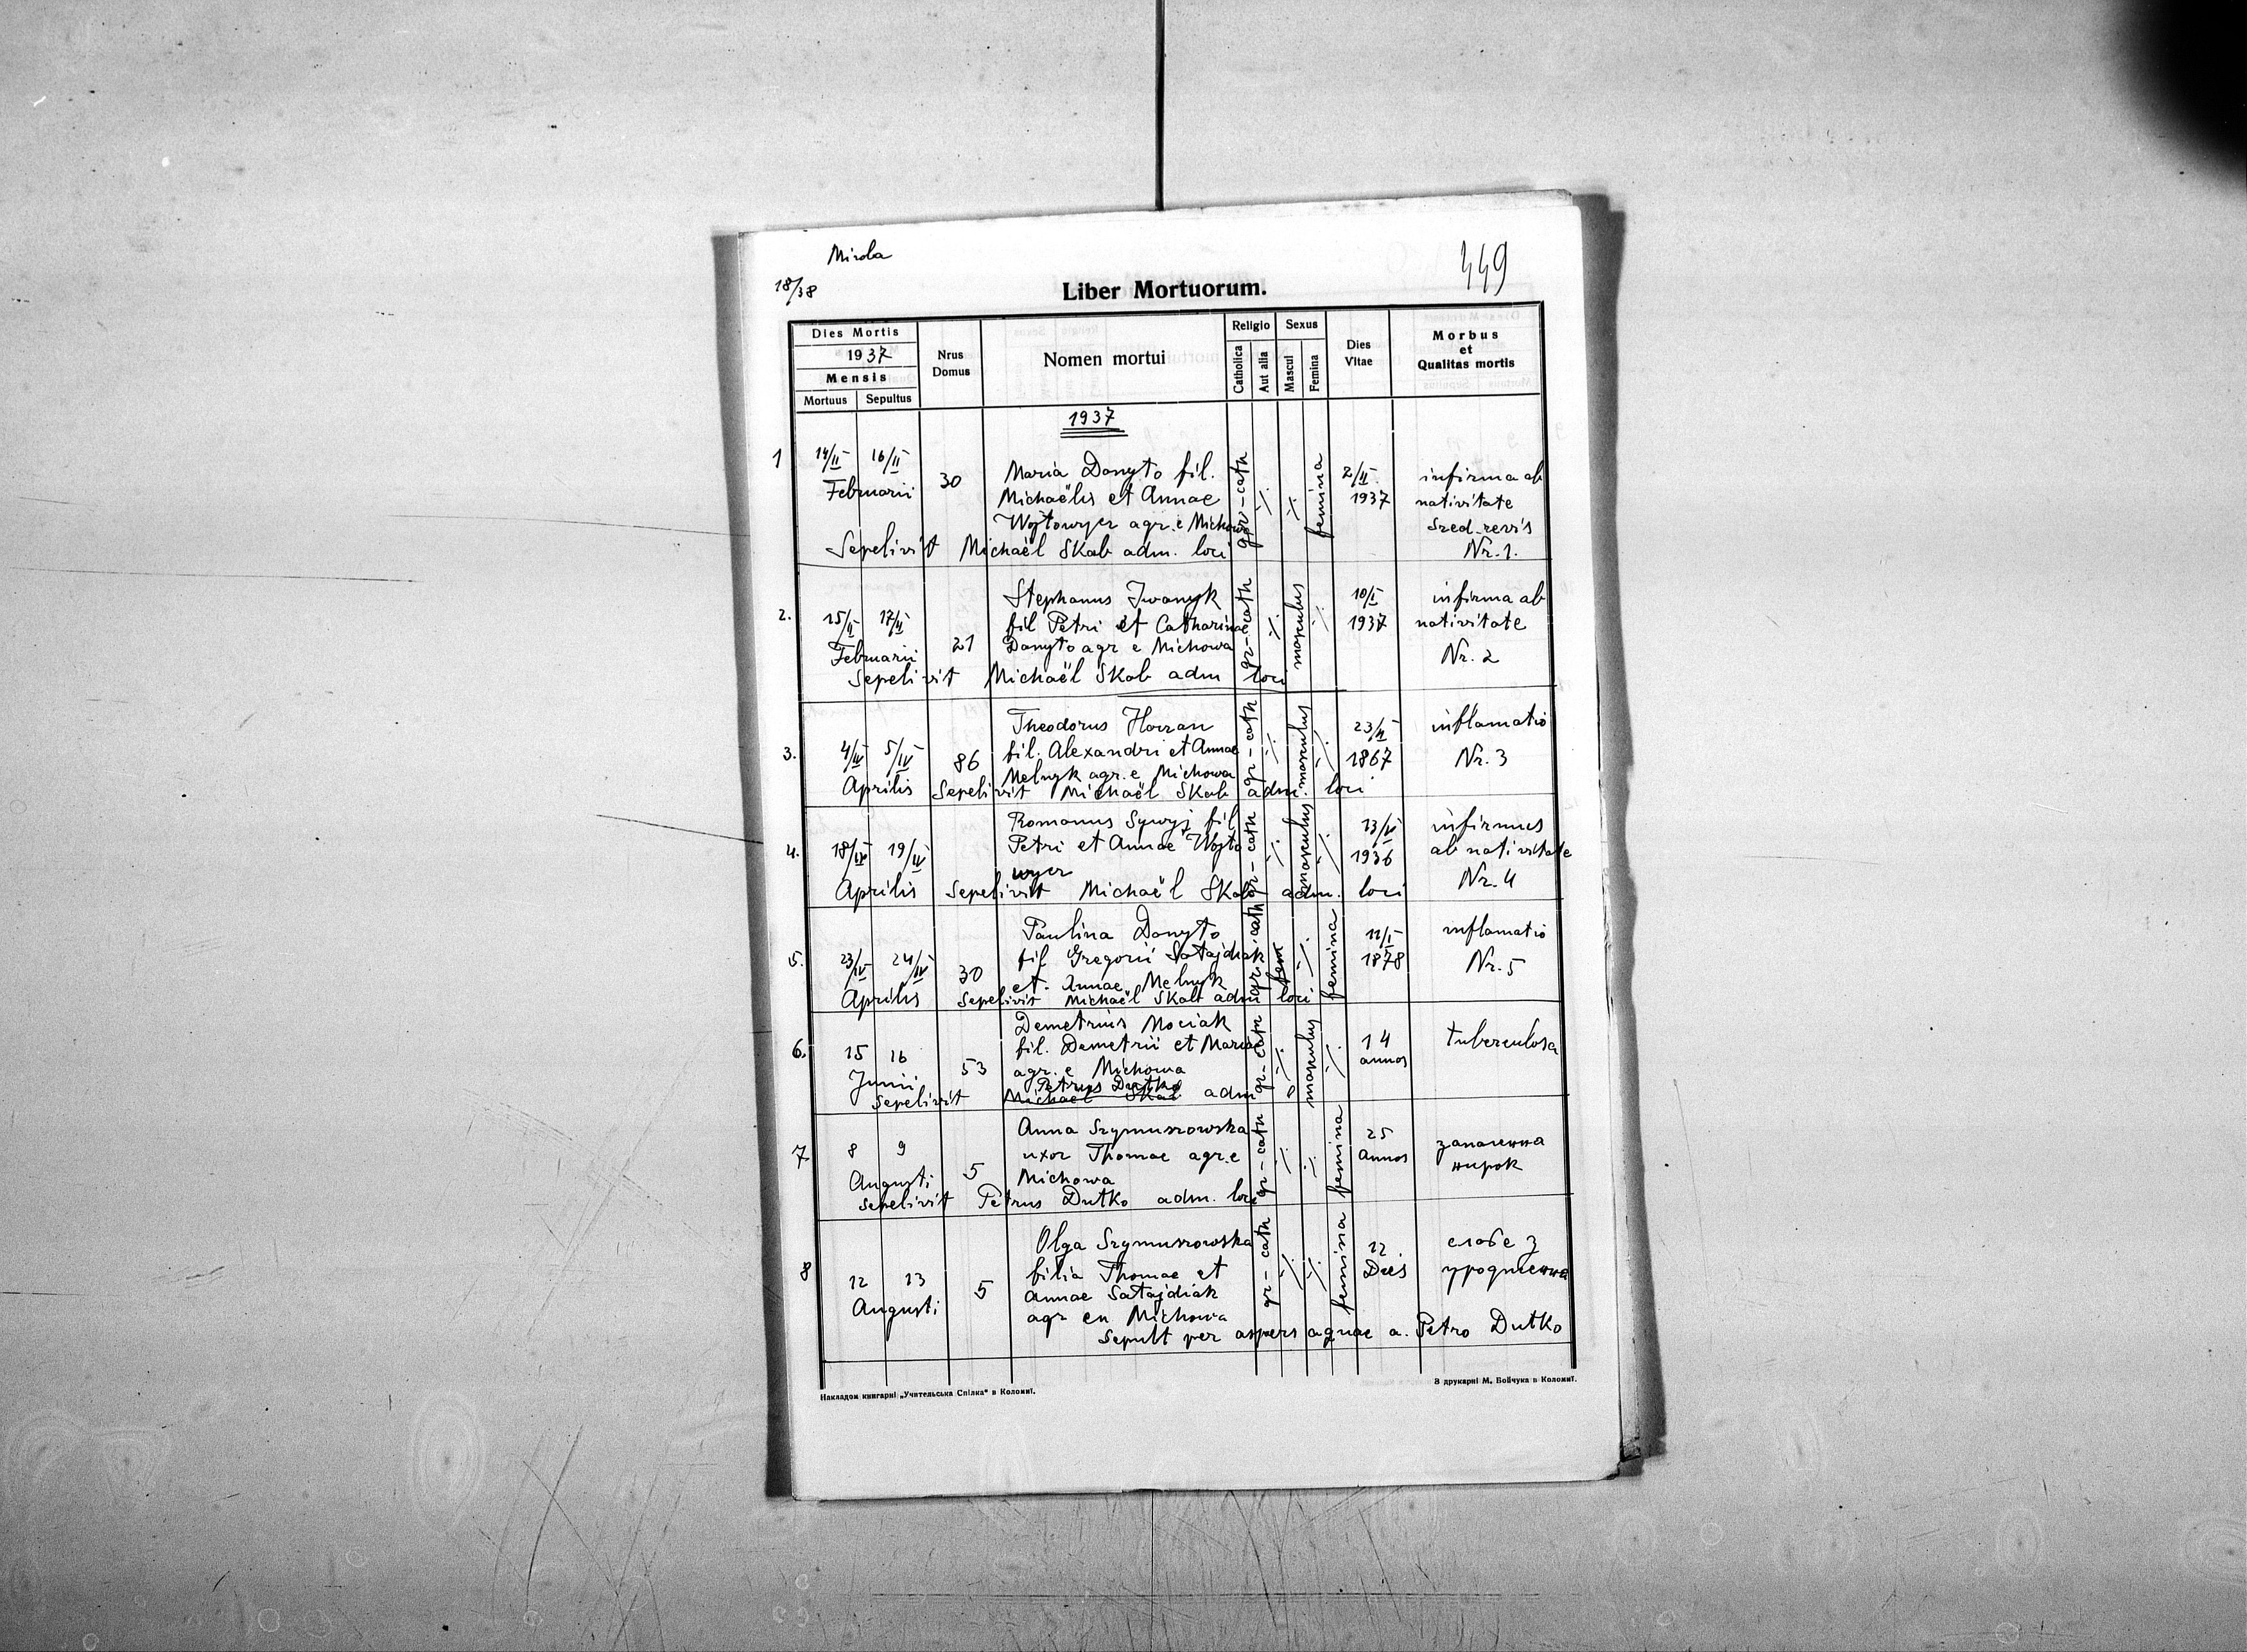 Mirola
449
18/38
Liber Mortuorum.
Dies Mortis
1937
Mensis
Mortuus Sepultus
Nrus Domus
Nomen mortui
Religio
Catholica Aut alia
Sexus
Mascul Femina
Dies Vitae
Morbus
et
Qualitas mortis
1937
1 14/II 16/II
Februarii
30
Maria Danyto fil.
Michaëlis et Annae
Wojtowycz agr. e Michowa
gr-cath ./. ./. femina
2/II
1937
infirma ab
nativitate
Nr. 1.
Sepelivit Michaël Skab adm. loci
2. 15/II 17/II
Februarii
21
Stephanus Iwanyk
fil Petri et Catharinae
Danyto agr e Michowa
gr-cath ./. masculus ./.
10/I
1937
infirma ab
nativitate
Nr. 2
Sepelivit Michaël Skab adm loci
3. 4/IV 5/IV
Aprilis
86
Theodorus
fil. Alexandri et Annae
Melnyk agr. e Michowa
gr-cath ./. masculus ./.
23/II
1867
inflamatio
Nr. 3
Sepelivit Michaël Skab adm. loci
4. 18/IV 19/IV
Aprilis
Romanus Sywyj fil
Petri et Annae Wojto
wycz
gr-cath ./. masculus ./.
13/IV
1936
infirmus
ab nativitate
Nr. 4
Sepelivit Michaël Skab adm. loci
5. 23/IV 24/IV
Aprilis
30
Paulina Danyto
fil Gregorii Satajdiak
et. Annae Melnyk
gr-cath fem ./. femina
11/I
1878
inflamatio
Nr. 5
Sepelivit Michaël Skab adm loci
6. 15 16
Junii
53
Demetrius Mociak
fil. Demetrii et Mariae
agr. e Michowa
gr-cath ./. masculus ./.
14
annos
tuberculosa
Petrus Dutko
Sepelivit Michaël Skab adm
7 8 9
Augusti
5
Anna Szymuszowska
uxor Thomae agr. e
Michowa
gr-cath ./. ./. femina
25
Annos
запалення
нирок
Sepelivit Petrus Dutko adm. loci
8 12 13
Augusti
5
Olga Szymuszowska
filia Thomae et
Annae Satajdiak
agr en Michowa
gr-cath ./. ./. femina
12
Dies
слабе з
уродження
Sepult per aspers aquae a. Petro Dutko
Накладом книгарні „Учительська Спілка" в Коломиї.
З друкарні М. Бойчука в Коломиї.